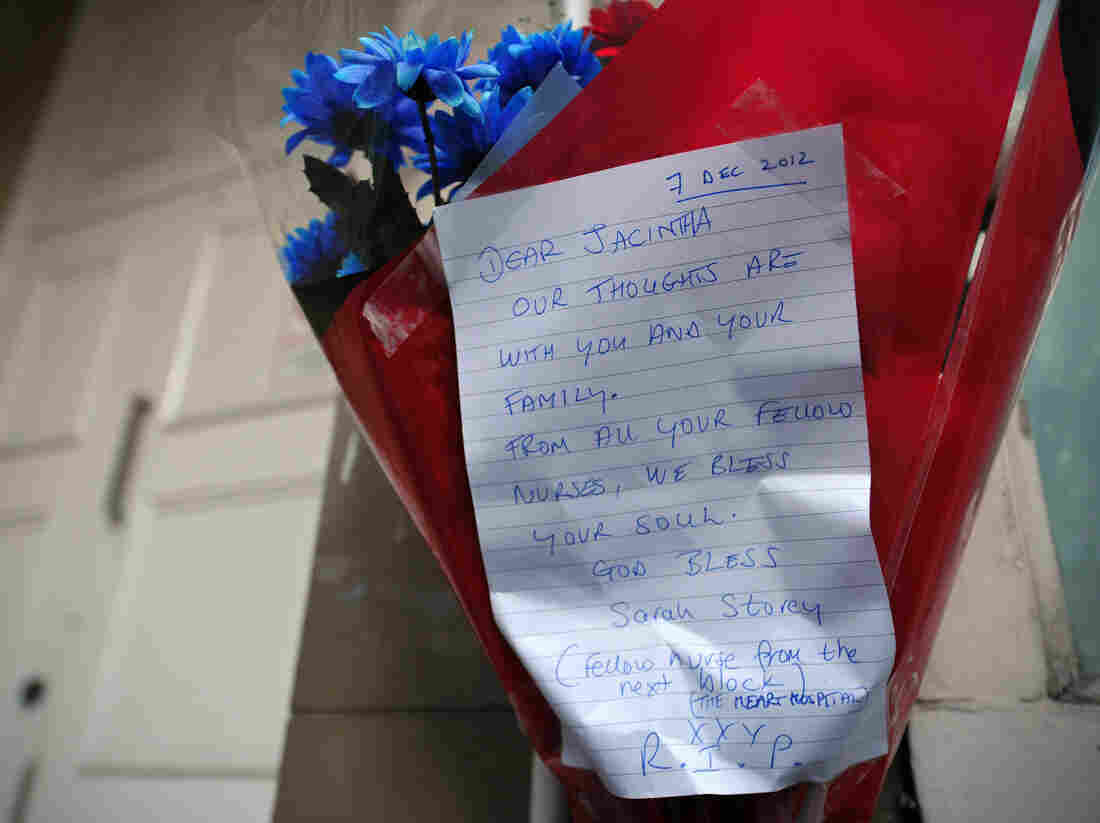 7 DEC 2012
DEAR JACINTHA
OUR THOUGHTS ARE
WITH YOU AND YOUR
FAMILY.
FROM ALL YOUR FELLOW
NURSES, WE BLESS
YOUR SOUL.
GOD BLESS
Sarah Storey
(Fellow nurse from the
next block)
(THE HEART HOSPITAL)
XXY
R.I.P.